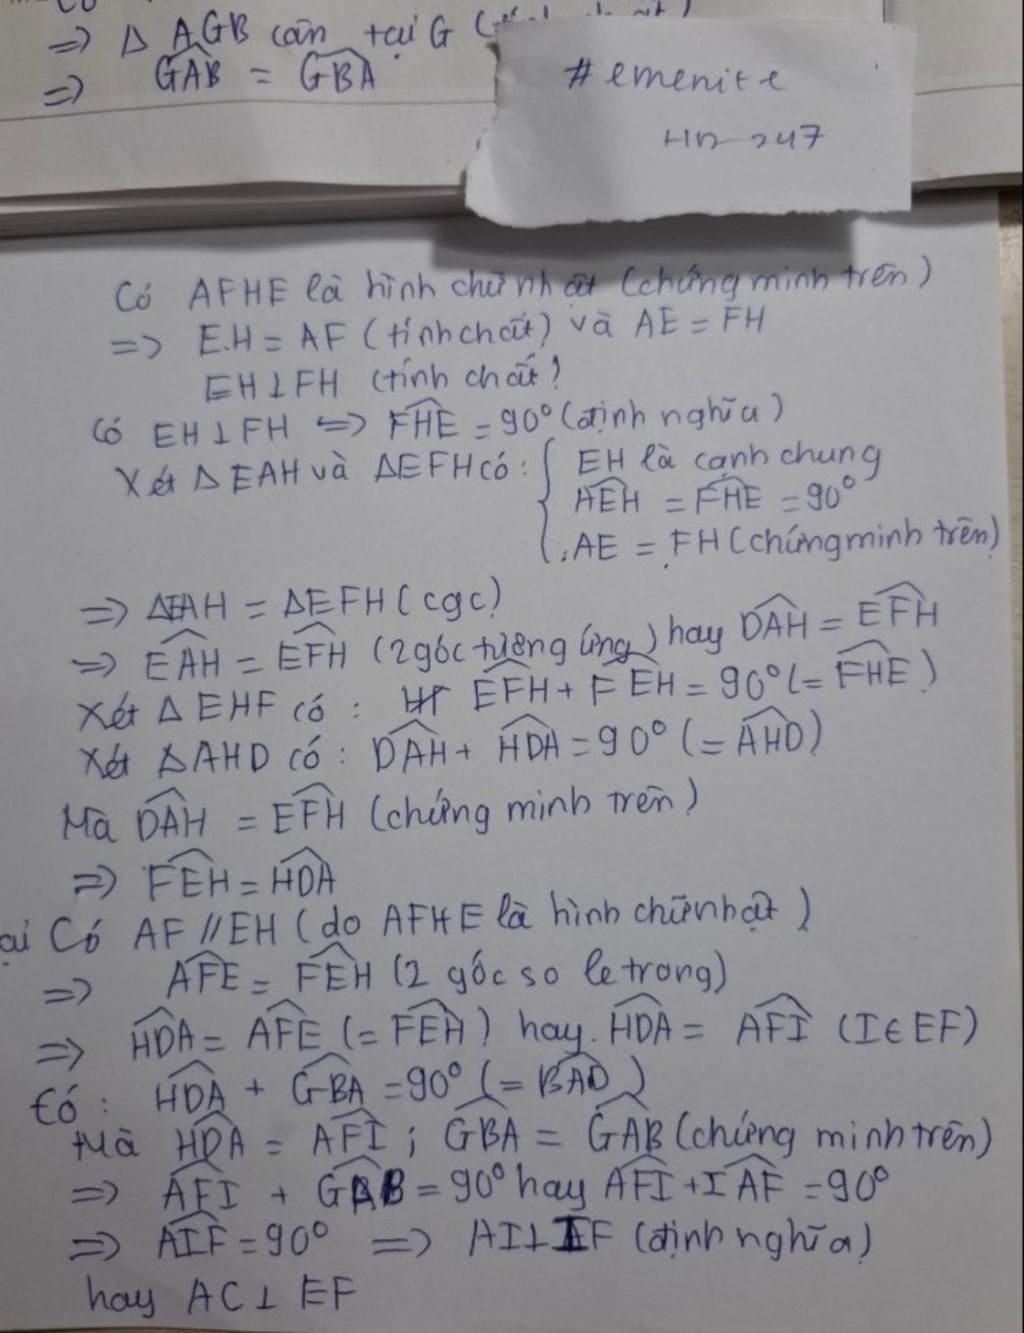 => Δ AGB cân tại G
=> GAB = GBA
#emenite
HD-247
Có AFHE là hình chữ nhật (chứng minh trên)
=> E.H = AF (tính chất) và AE = FH
EH ⊥ FH (tính chất)
Có EH ⊥ FH <=> FHE = 90° (định nghĩa)
Xét Δ EAH và ΔEFH có: { EH là cạnh chung
AEH = FHE = 90°
AE = FH (chứng minh trên)
=> ΔEAH = ΔEFH (cgc)
=> EAH = EFH (2 góc tương ứng) hay DAH = EFH
Xét Δ EHF có: EFH + FEH = 90° (= FHE)
Xét ΔAHD có: DAH + HDA = 90° (= AHD)
Mà DAH = EFH (chứng minh trên)
=> FEH = HDA
ại Có AF // EH (do AFHE là hình chữ nhật)
=> AFE = FEH (2 góc so le trong)
=> HDA = AFE (= FEH) hay HDA = AFI (I ∈ EF)
Có: HDA + GBA = 90° (= BAD)
Mà HDA = AFI ; GBA = GAB (chứng minh trên)
=> AFI + GAB = 90° hay AFI + IAF = 90°
=> AIF = 90° => AI ⊥ IF (định nghĩa)
hay AC ⊥ EF